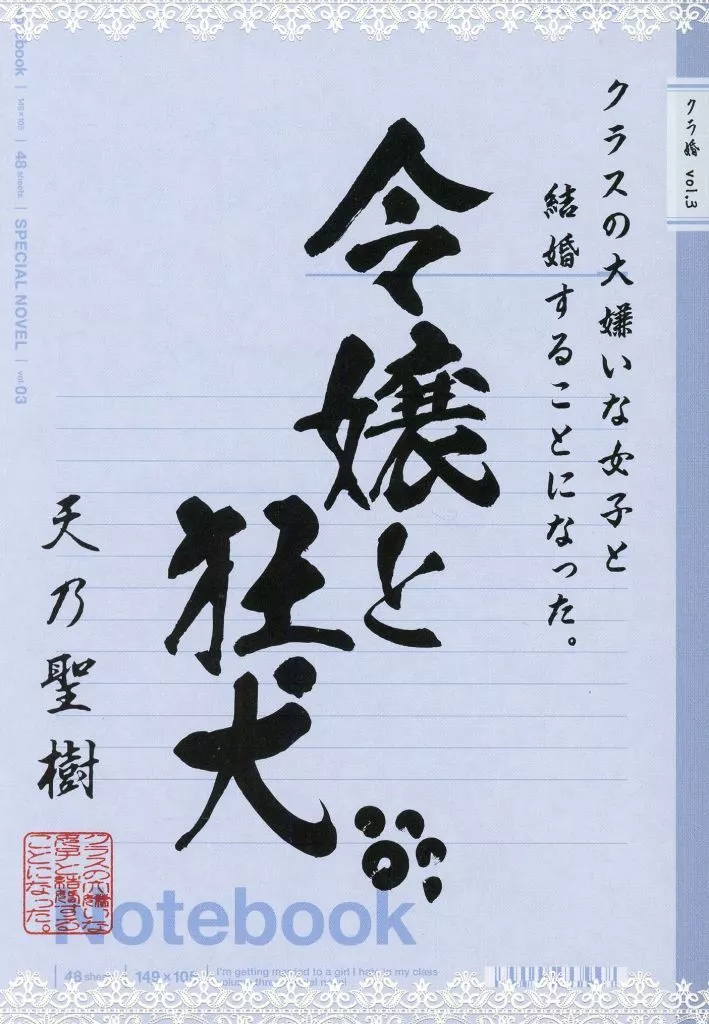 クラ婚 vol.3
クラスの大嫌いな女子と
結婚することになった。
令嬢と
狂犬
天乃聖樹
クラスの大嫌いな
女子と結婚する
ことになった。
notebook | 149×105 | 48 sheets | SPECIAL NOVEL | vol.03
Notebook
48 sheets | 149×105 | I'm getting married to a girl I hate in my class
volume three special novel